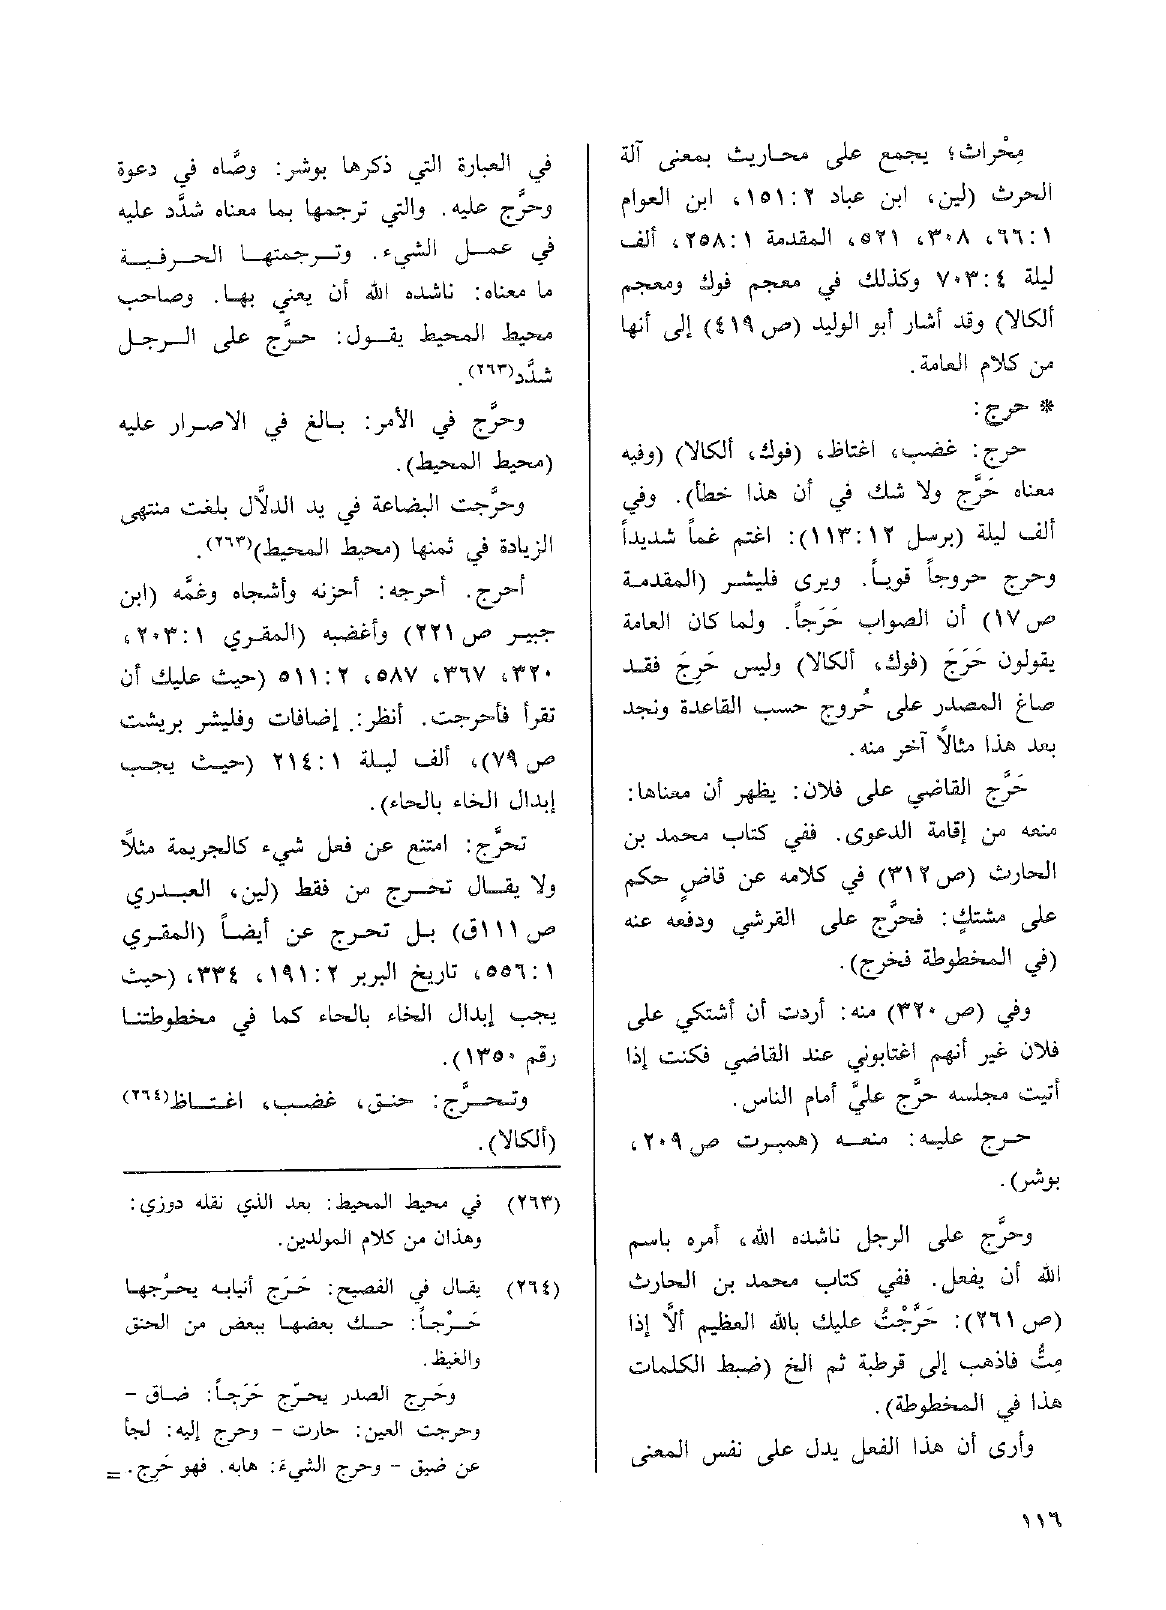 مِحْراث؛ يجمع على محاريث بمعنى آلة
الحرث (لين، ابن عباد ٢:١٥١، ابن العوام
١:٦٦، ٣٠٨، ٥٢١، المقدمة ١:٢٥٨، ألف
ليلة ٤:٧٠٣ وكذلك في معجم فوك ومعجم
ألكالا) وقد أشار أبو الوليد (ص٤١٩) إلى أنها
من كلام العامة.
* حرج:
حرج: غضب، اغتاظ، (فوك، ألكالا) (وفيه
معناه حَرَّج ولا شك في أن هذا خطأ). وفي
ألف ليلة (برسل ١٢:١١٣): اغتم غماً شديداً
وحرج حروجاً قوياً. ويرى فليشر (المقدمة
ص١٧) أن الصواب حَرَجاً. ولما كان العامة
يقولون حَرَجَ (فوك، ألكالا) وليس حَرِجَ فقد
صاغ المصدر على حُروج حسب القاعدة ونجد
بعد هذا مثالاً آخر منه.
حَرَّج القاضي على فلان: يظهر أن معناها:
منعه من إقامة الدعوى. ففي كتاب محمد بن
الحارث (ص٣١٢) في كلامه عن قاضٍ حكم
على مشتكٍ: فحرَّج على القرشي ودفعه عنه
(في المخطوطة فخرج).
وفي (ص٣٢٠) منه: أردت أن أشتكي على
فلان غير أنهم اغتابوني عند القاضي فكنت إذا
أتيت مجلسه حرَّج عليَّ أمام الناس.
حرج عليه: منعه (همبرت ص٢٠٩،
بوشر).
وحرَّج على الرجل ناشده الله، أمره باسم
الله أن يفعل. ففي كتاب محمد بن الحارث
(ص٢٦١): حَرَّجْتُ عليك بالله العظيم ألاَّ إذا
مِتُّ فاذهب إلى قرطبة ثم الخ (ضبط الكلمات
هذا في المخطوطة).
وأرى أن هذا الفعل يدل على نفس المعنى
في العبارة التي ذكرها بوشر: وصَّاه في دعوة
وحرَّج عليه. والتي ترجمها بما معناه شدَّد عليه
في عمل الشيء. وترجمتها الحرفية
ما معناه: ناشده الله أن يعني بها. وصاحب
محيط المحيط يقول: حرَّج على الرجل
شدَّد(٢٦٣).
وحرَّج في الأمر: بالغ في الاصرار عليه
(محيط المحيط).
وحرَّجت البضاعة في يد الدلاَّل بلغت منتهى
الزيادة في ثمنها (محيط المحيط)(٢٦٣).
أحرج. أحرجه: أحزنه وأشجاه وغمَّه (ابن
جبير ص٢٢١) وأغضبه (المقري ١:٢٠٣،
٣٢٠، ٣٦٧، ٥٨٧، ٢:٥١١ (حيث عليك أن
تقرأ فأحرجت. أنظر: إضافات وفليشر بريشت
ص٧٩)، ألف ليلة ١:٢١٤ (حيث يجب
إبدال الخاء بالحاء).
تحرَّج: امتنع عن فعل شيء كالجريمة مثلاً
ولا يقال تحرج من فقط (لين، العبدري
ص١١١ق) بل تحرج عن أيضاً (المقري
١:٥٥٦، تاريخ البربر ٢:١٩١، ٣٣٤، (حيث
يجب إبدال الخاء بالحاء كما في مخطوطتنا
رقم ١٣٥٠).
وتحرَّج: حنق، غضب، اغتاظ(٢٦٤)
(ألكالا).
(٢٦٣) في محيط المحيط: بعد الذي نقله دوزي:
وهذان من كلام المولدين.
(٢٦٤) يقال في الفصيح: حَرَج أنيابه يحرُجها
حَرْجاً: حك بعضها ببعض من الحنق
والغيظ.
وحَرِج الصدر يحرَج حَرَجاً: ضاق -
وحرجت العين: حارت - وحرج إليه: لجأ
عن ضيق - وحرج الشيءَ: هابه. فهو حَرِج. =
١١٦